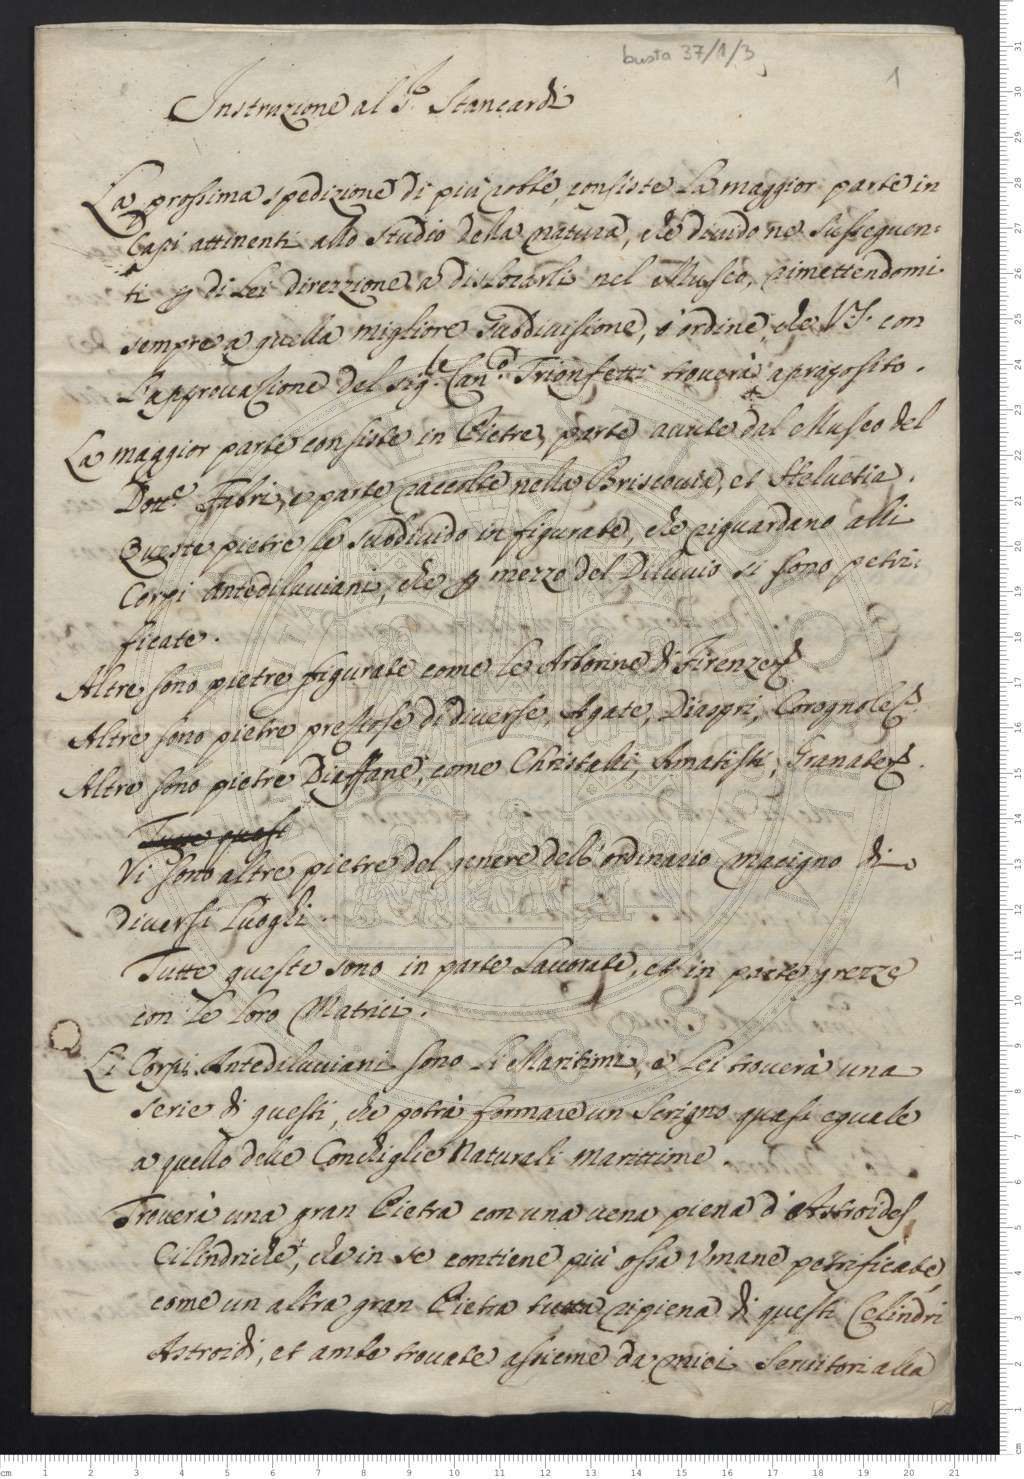 busta 37/1/3
1
Instruzione al Sr. Stancardi
La prossima spedizione di più robbe, consiste la maggior parte in
Capi attinenti allo studio della natura, che divido ne susseguen=
ti p di Lei direzzione a dislocarli nel Museo, rimettendomi
sempre a quella migliore subdivisione, e ordine, che VS. con
l'approvasione del Sigre Cano. Trionfetti troverà a proposito.
La maggior parte consiste in Pietre, parte avute dal Museo del
Donre Fabri, e parte raccolte nella Briscovia, et Helvetia.
Queste pietre le subdivido in figurate, che riguardano alli
Corpi antediluviani, che p mezzo del Diluvio si sono petri=
ficate.
Altre sono pietre figurate come le Arborine di Firenze
Altre sono pietre pretiose di diverse Agate, Diaspri, Corognole
Altre sono pietre Diaffane, come Christalli, Amatisti, Granate
Tutte quest
Vi sono altre pietre del genere dell'ordinario macigno di
diversi luoghi.
Tutte queste sono in parte lavorate, et in parte grezze
con le loro Matrici.
Li Corpi Antediluviani sono li Maritimi, e Lei troverà una
serie di questi, che potrà formare un Scrigno quasi eguale
a quello delle Conchiglie Naturali marittime.
Troverà una gran Pietra con una vena piena d'Astroides
Cilindriche, che in se contiene più ossa Umane petrificate,
come un altra gran Pietra tutta ripiena di questi Celindri
Astroidi, et ambe trovate assieme da miei Servitori alla